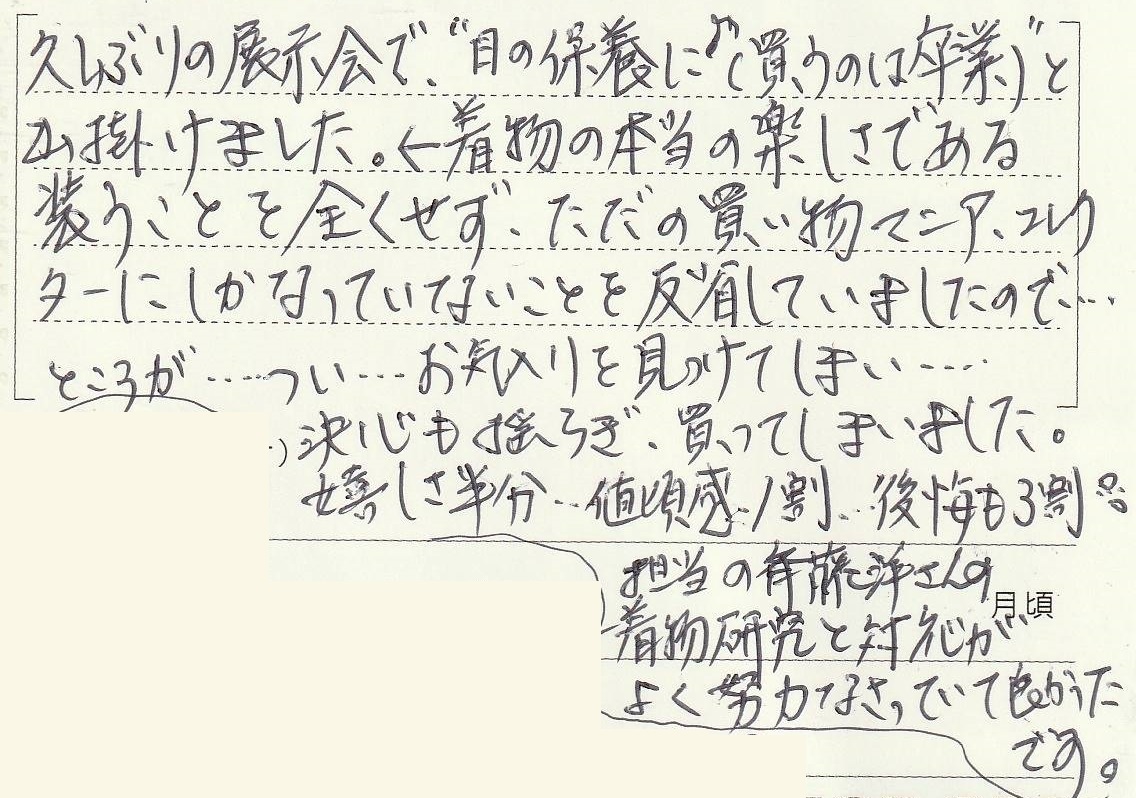 久しぶりの展示会で、“目の保養に♪(買うのは卒業)”と
出掛けました。←着物の本当の楽しさである
装うことを全くせず、ただの買い物マニア、コレク
ターにしかなっていないことを反省していましたので…
ところが……つい……お気入りを見つけてしまい……
決心も揺らぎ、買ってしまいました。
嬉しさ半分…値頃感1割…後悔も3割
担当の斉藤 さんの
月頃
着物研究と対応が
よく努力なさっていて良かった
です。